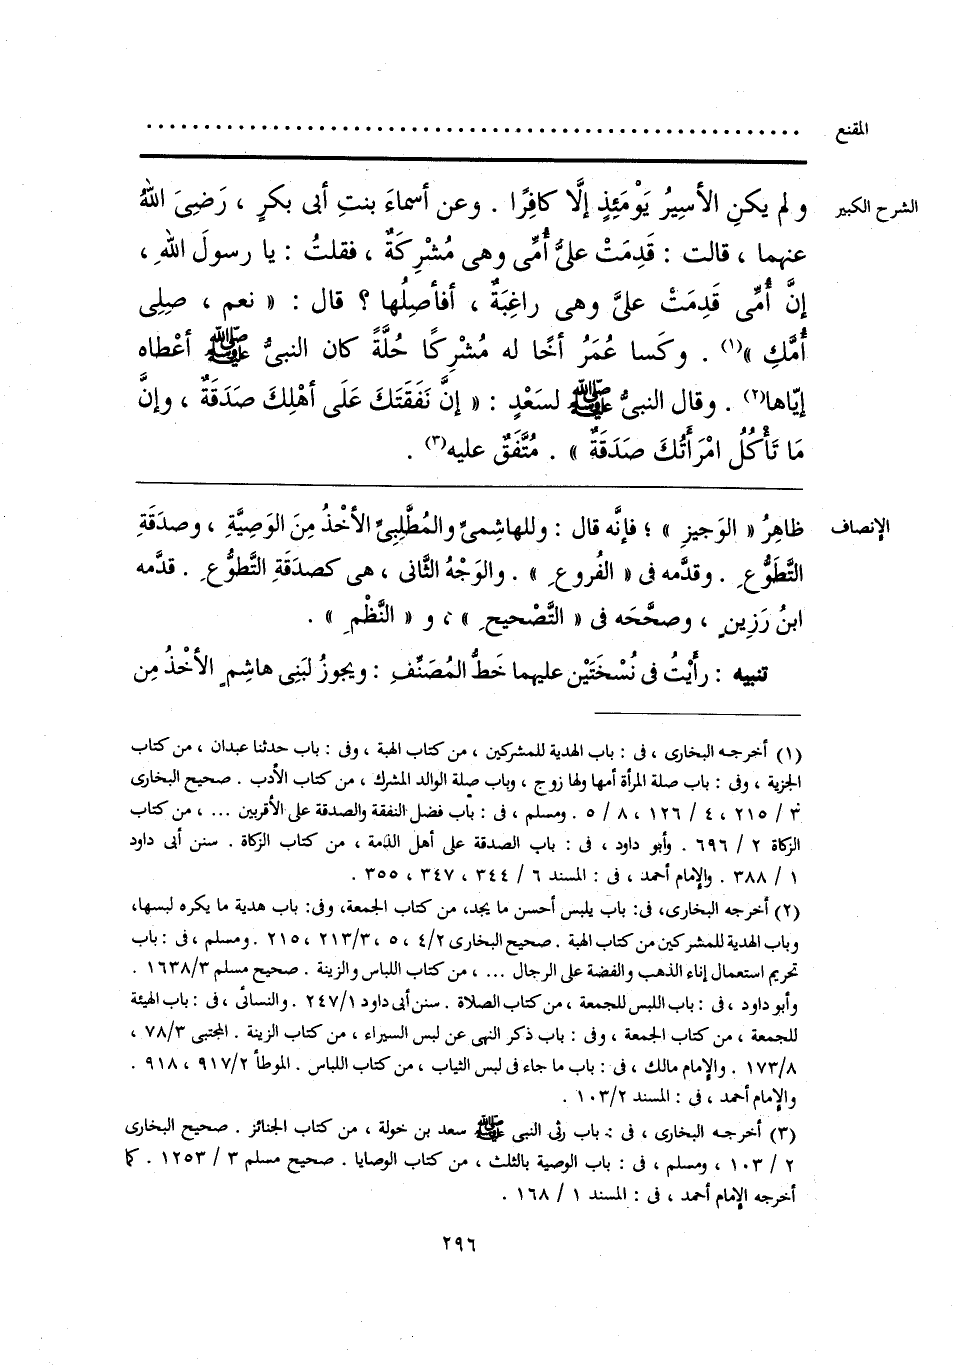 المقنع ........................................................
الشرح الكبير ولم يكنِ الأسِيرُ يَوْمَئِذٍ إلَّا كافِرًا . وعن أسماءَ بنتِ أبى بكرٍ ، رَضِىَ اللهُ
عنهما ، قالت : قَدِمَتْ علىَّ أُمِّى وهى مُشْرِكَةٌ ، فقلتُ : يا رسولَ اللهِ ،
إنَّ أُمِّى قَدِمَتْ علىَّ وهى راغِبَةٌ ، أفأصِلُها ؟ قال : « نعم ، صِلِى
أُمَّكِ »(١) . وكَسا عُمَرُ أخًا له مُشْرِكًا حُلَّةً كان النبىُّ ﷺ أعْطاه
إيّاها(٢) . وقال النبىُّ ﷺ لسَعْدٍ : « إنَّ نَفَقَتَكَ عَلَى أهْلِكَ صَدَقَةٌ ، وإنَّ
مَا تَأْكُلُ امْرَأَتُكَ صَدَقَةٌ » . مُتَّفَقٌ عليه(٣) .
الإنصاف ظاهِرُ « الوَجيزِ » ؛ فإنَّه قال : وللهاشِمىِّ والمُطَّلِبِىِّ الأخْذُ مِنَ الوَصِيَّةِ ، وصدَقَةِ
التَّطَوُّعِ . وقدَّمه فى « الفُروعِ » . والوَجْهُ الثَّانى ، هى كصدَقَةِ التَّطوُّعِ . قدَّمه
ابنُ رَزِينٍ ، وصحَّحَه فى « التَّصْحيحِ » ، و « النَّظْمِ » .
تنبيه : رأَيْتُ فى نُسْخَتَيْن عليهما خَطُّ المُصَنِّفِ : ويجوزُ لبَنِى هاشِمٍ الأخْذُ مِن
(١) أخرجه البخارى ، فى : باب الهدية للمشركين ، من كتاب الهبة ، وفى : باب حدثنا عبدان ، من كتاب
الجزية ، وفى : باب صلة المرأة أمها ولها زوج ، وباب صلة الوالد المشرك ، من كتاب الأدب . صحيح البخارى
٣ / ٢١٥ ، ٤ / ١٢٦ ، ٨ / ٥ . ومسلم ، فى : باب فضل النفقة والصدقة على الأقربين ... ، من كتاب
الزكاة ٢ / ٦٩٦ . وأبو داود ، فى : باب الصدقة على أهل الذمة ، من كتاب الزكاة . سنن أبى داود
١ / ٣٨٨ . والإمام أحمد ، فى : المسند ٦ / ٣٤٤ ، ٣٤٧ ، ٣٥٥ .
(٢) أخرجه البخارى، فى: باب يلبس أحسن ما يجد، من كتاب الجمعة، وفى: باب هدية ما يكره لبسها،
وباب الهدية للمشركين من كتاب الهبة . صحيح البخارى ٤/٢ ، ٥ ، ٢١٣/٣ ، ٢١٥ . ومسلم ، فى : باب
تحريم استعمال إناء الذهب والفضة على الرجال ... ، من كتاب اللباس والزينة . صحيح مسلم ١٦٣٨/٣ .
وأبو داود ، فى : باب اللبس للجمعة ، من كتاب الصلاة . سنن أبى داود ٢٤٧/١ . والنسائى ، فى : باب الهيئة
للجمعة ، من كتاب الجمعة ، وفى : باب ذكر النهى عن لبس السيراء ، من كتاب الزينة . المجتبى ٧٨/٣ ،
١٧٣/٨ . والإمام مالك ، فى : باب ما جاء فى لبس الثياب ، من كتاب اللباس . الموطأ ٩١٧/٢ ، ٩١٨ .
والإمام أحمد ، فى : المسند ١٠٣/٢ .
(٣) أخرجه البخارى ، فى : باب رثى النبى ﷺ سعد بن خولة ، من كتاب الجنائز . صحيح البخارى
٢ / ١٠٣ ، ومسلم ، فى : باب الوصية بالثلث ، من كتاب الوصايا . صحيح مسلم ٣ / ١٢٥٣ . كما
أخرجه الإمام أحمد ، فى : المسند ١ / ١٦٨ .
٢٩٦